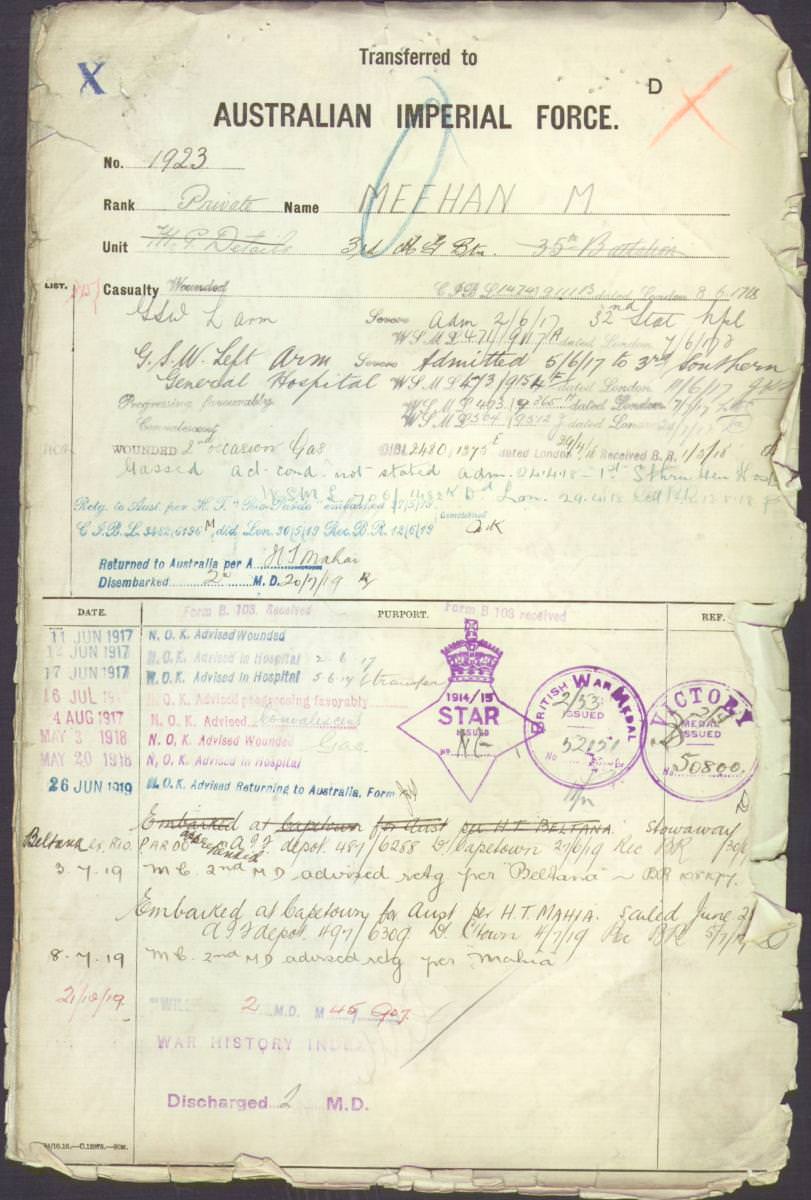 Transferred to
D
AUSTRALIAN IMPERIAL FORCE.
No. 1923
Rank Private Name MEEHAN M
Unit H.Q. Details 3rd M G Btn. 35th Battalion
LIST. Casualty Wounded C I B L 1474 dated London 8.6.17
GSW L arm Severe adm 2/6/17 32nd Stat Hpl
W.S.M.L 471/9117A dated London 7/6/17
G.S.W. Left Arm Severe Admitted 5/6/17 to 3rd Southern
General Hospital W.S.M.L 473/9154 dated London 11/6/17
Progressing favourably W.S.M.L 493 dated London
Convalescent W.S.M.L 504 9512 dated London
WOUNDED 2nd occasion Gas CIBL 2480, 1375E dated London 29/4/18 Received B.R. 1/5/18
Gassed ad. cond. not stated adm. 24.4.18 - 1st Sthrn Gen Hosp
W S M L Lon. 29.4.18
Retg. to Aust. per H.T. "Rio Pardo" embarked
C I B L 3482, 6136 M, dtd. Lon. 30/5/19 Rec. B.R. 12/6/19
Returned to Australia per A H T Mahia
Disembarked 2nd M.D. 20/7/19
DATE. Form B 103 Received PURPORT. Form B 103 received REF.
11 JUN 1917 N.O.K. Advised Wounded
JUN 1917 N.O.K. Advised in Hospital 2.6.17
17 JUN 1917 N.O.K. Advised in Hospital 5.6.17 (transfer
16 JUL N.O.K. Advised progressing favorably
4 AUG 1917 N.O.K. Advised Convalescent
MAY 3 1918 N.O.K. Advised Wounded Gas
MAY 20 1918 N.O.K. Advised in Hospital
26 JUN 1919 N.O.K. Advised Returning to Australia. Form
1914/15
STAR
ISSUED
No NE
BRITISH WAR MEDAL
2/53
ISSUED
No 52051
VICTORY
MEDAL
ISSUED
No 50800
Embarked at Capetown for Aust per H.T. BELTANA. stowaway
Beltana ex. RIO PARDO A I F depot 481/6288 D/ Capetown 27/6/19 Rec BR 30/6
3.7.19 M C. 2nd M D advised retg per "Beltana"
Embarked at Capetown for Aust per H.T. MAHIA. sailed June 21
A I F depot 497/6309 D/ C'town 4/7/19 Rec BR 5/7/19
8.7.19 M C. 2nd M D advised retg per "Mahia"
21/10/19. 2 M.D. M 45
WAR HISTORY INDEX
Discharged 2 M.D.